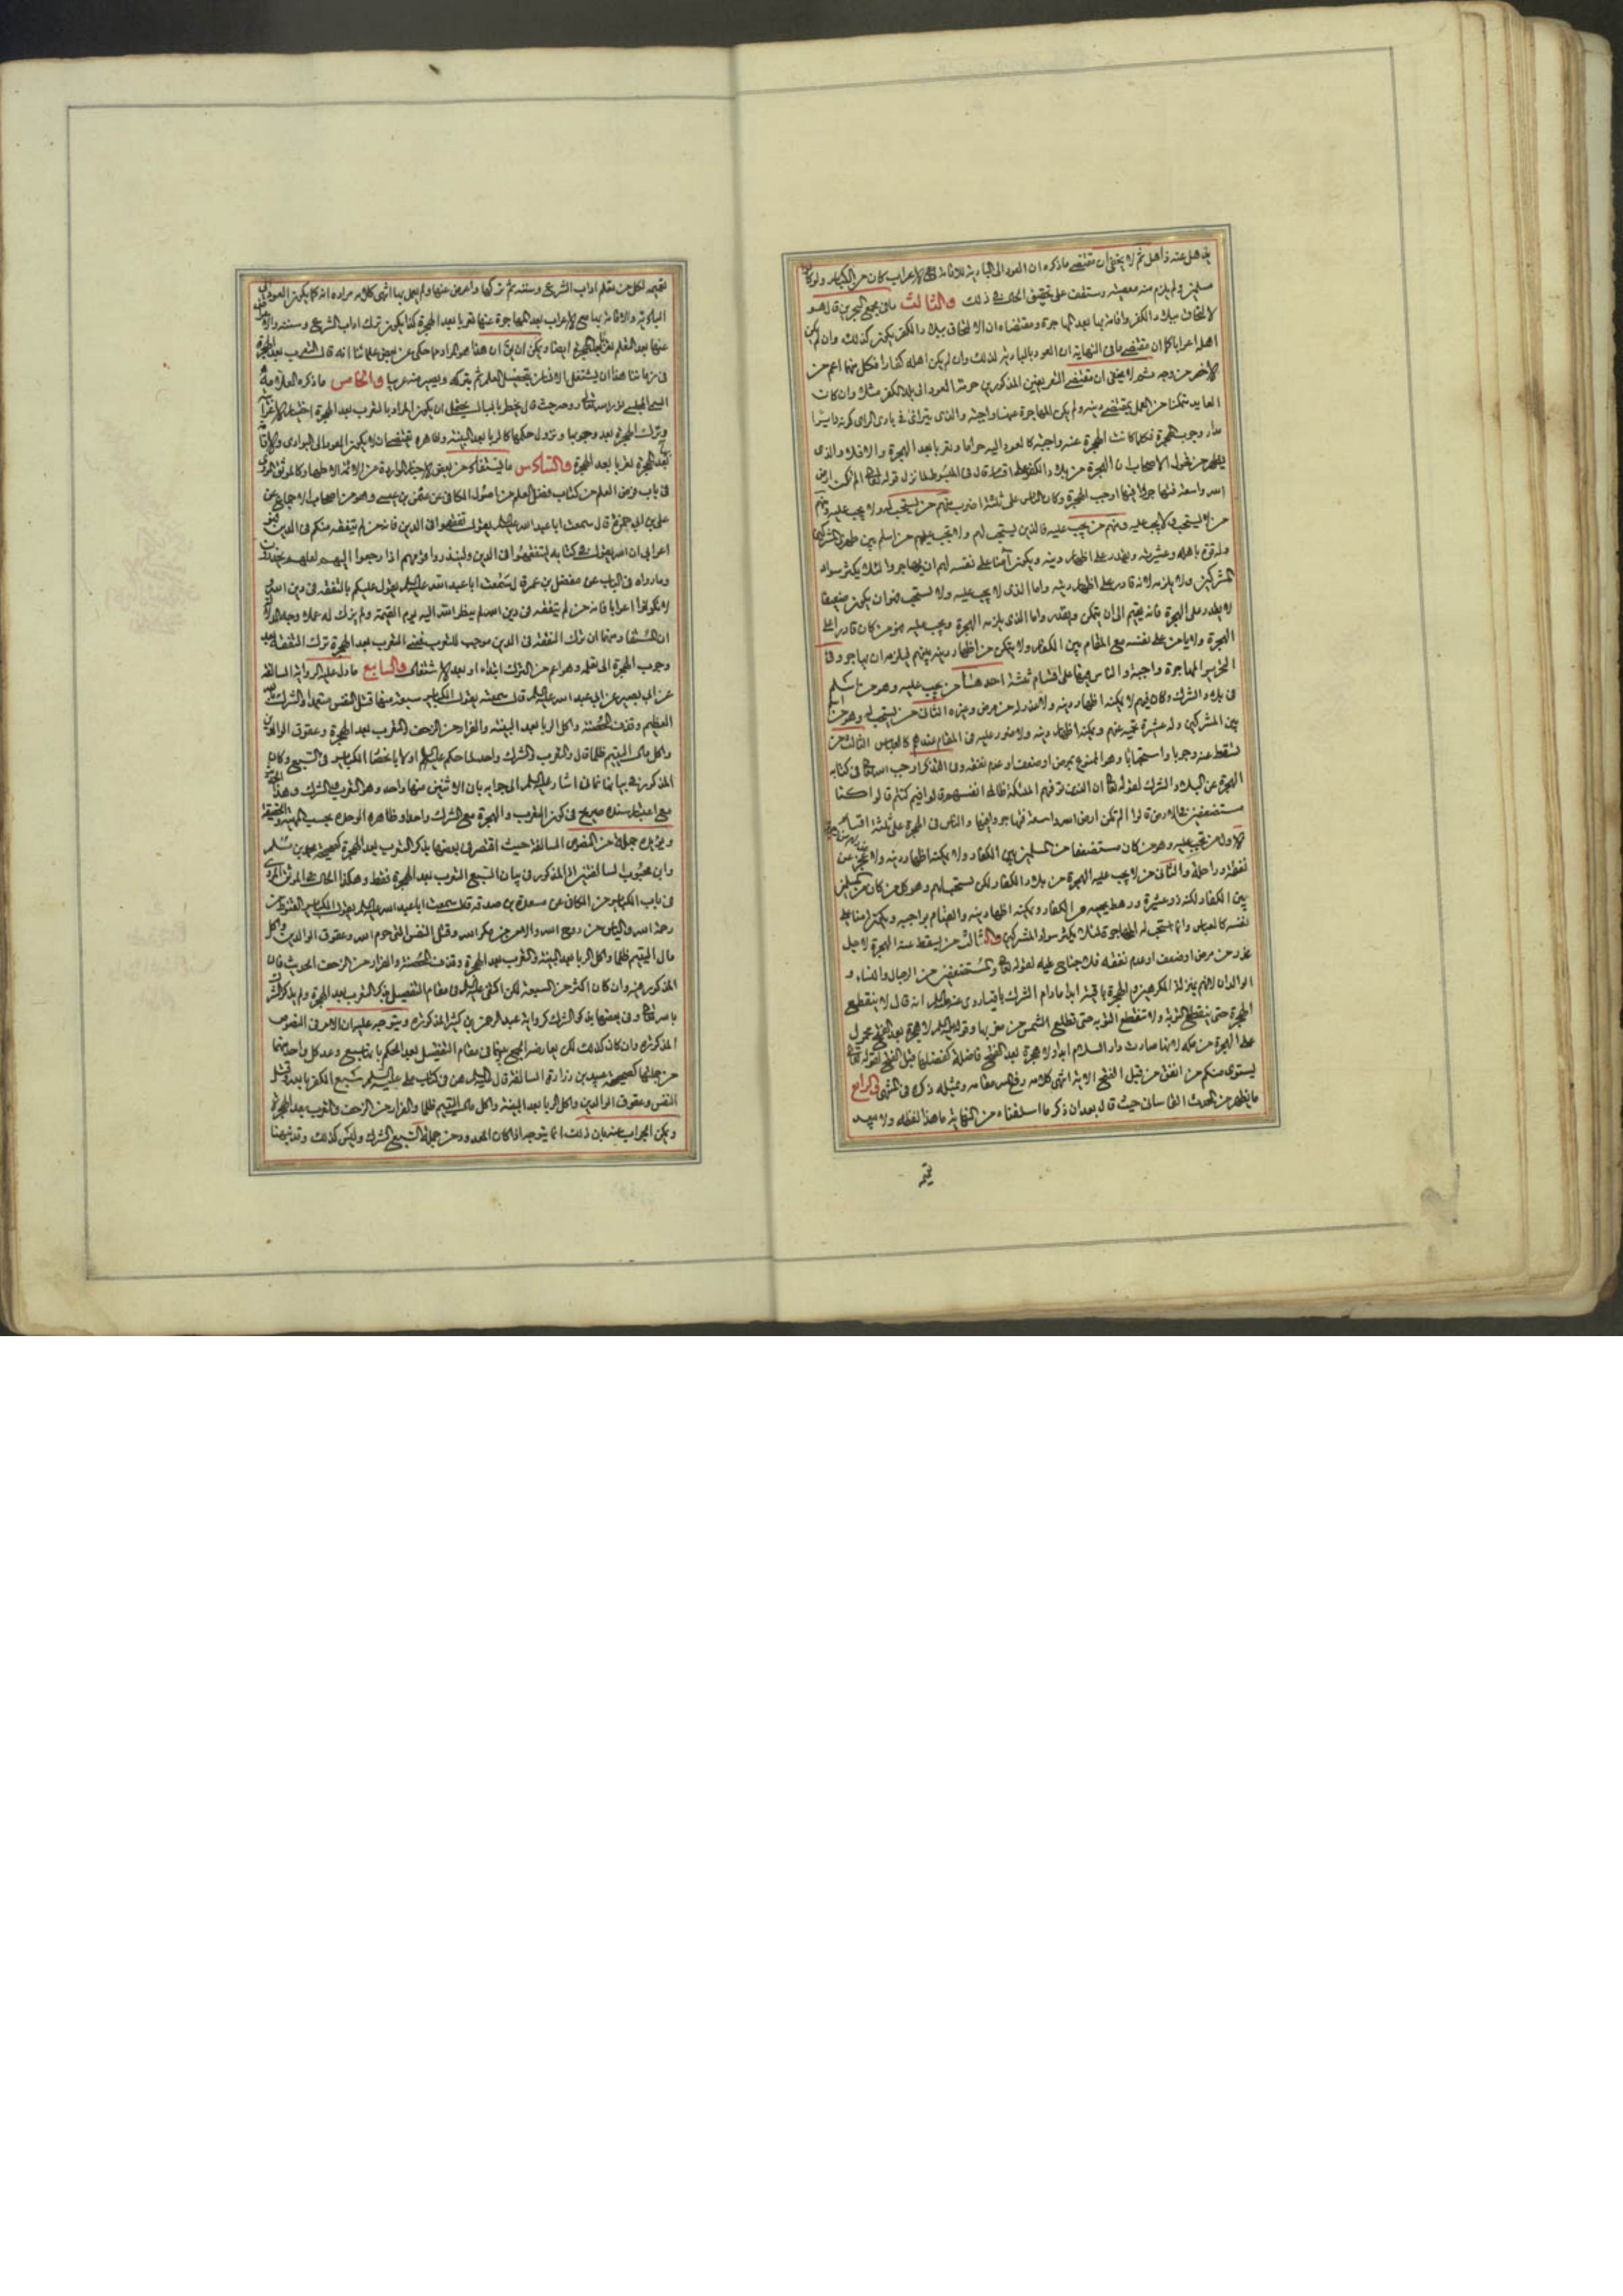 يذهل عنه ذاهل ثم لا يخفى ان مقتضى ما ذكره ان العود الى البادية للاقامة مع الاعراب كان من الكبائر ولو كان
مسلمين ولم يلزم منه معصية وستقف على تحقيق الحال في ذلك والثالث ما في مجمع البحرين قال هو
الالتحاق ببلاد الكفر والاقامة بها بعد المهاجرة ومقتضاه ان الالتحاق ببلاد الكفر يكون كذلك وان لم يكن
اهله اعرابا كما ان مقتضى ما في النهاية ان العود بالبادية كذلك وان لم يكن اهله كفارا فكل منهما اعم من
الاخر من وجه ثم لا يخفى ان مقتضى التعريفين المذكورين حرمة العود الى بلاد الكفر مثلا وان كان
العايد متمكنا من العمل بمقتضى دينه ولم يكن المهاجرة عنها واجبة والذي يتراءى في بادي الراي كونه دايرا
مدار وجوب الهجرة فكلما كانت الهجرة عنه واجبة كان العود اليه حراما وتعربا بعد الهجرة والا فلا والذي
يظهر من فحول الاصحاب ان الهجرة من بلاد الكفر على اقسام قال في المبسوط لما نزل قوله تعالى الم تكن ارض
الله واسعة فتهاجروا فيها اوجب الهجرة وكان الناس على ثلثة اضرب منهم من يستحب له ولا يجب عليه ومنهم
من لا يستحب له ولا يجب عليه ومنهم من يجب عليه فالذين يستحب لهم ولا يجب عليهم من اسلم بين ظهراني المشركين
وله قوة باهله وعشيرته ويقدر على اظهار دينه ويكون آمنا على نفسه لهم ان يهاجروا لئلا يكثر سواد
المشركين ولا يلزمه لانه قادر على اظهار دينه واما الذي لا يجب عليه ولا يستحب فهو ان يكون ضعيفا
لا يقدر على الهجرة فانه يقيم الى ان يتمكن ويقدر واما الذي يلزمه الهجرة ويجب عليه فهو من كان قادرا على
الهجرة ولا يأمن على نفسه مع المقام بين الكفار ولا يتمكن من اظهار دينه بينهم فيلزمه ان يهاجر وفي
التحرير المهاجرة واجبة والناس فيها على اقسام ثلثة احدها من يجب عليه وهو من اسلم
في بلاد الشرك وكان فيهم لا يمكنه اظهار دينه ولا عذر له من مرض وغيره الثاني من يستحب له وهو من اسلم
بين المشركين وله عشيرة تحميه عنهم ويمكنه اظهار دينه ولا ضرر عليه في المقام عندهم كالعباس الثالث من
تسقط عنه وجوبا واستحبابا وهو الممنوع بمرض او ضعف او عدم نفقة وفي التذكرة اوجب الله تعالى في كتابه
الهجرة عن البلاد الشرك لقوله تعالى ان الذين توفيهم الملئكة ظالمي انفسهم قالوا فيم كنتم قالوا كنا
مستضعفين في الارض قالوا الم تكن ارض الله واسعة فتهاجروا فيها والناس في الهجرة على ثلثة اقسام
الاول من تجب عليه وهو من كان مستضعفا من المسلمين بين الكفار ولا يمكنه اظهار دينه ولا عجز عن
نفقة وراحلة والثاني من لا يجب عليه الهجرة من بلاد الكفار لكن يستحب لهم وهو كل من كان من المسلمين
بين الكفار لكنه ذو عشيرة ورهط يحميه من الكفار ويمكنه اظهار دينه والقيام بواجبه ويكون آمنا على
نفسه كالعباس وانما استحب له المهاجرة لئلا يكثر سواد المشركين والثالث من يسقط عنه الهجرة لاجل
عذر من مرض او ضعف او عدم نفقة فلا جناح عليه لقوله تعالى الا المستضعفين من الرجال والنساء و
الولدان لانهم بمنزلة المكرهين والهجرة باقية ابدا مادام الشرك باقيا روي عنه عليه السلم انه قال لا ينقطع
الهجرة حتى ينقطع التوبة ولا تنقطع التوبة حتى تطلع الشمس من مغربها وقوله عليه السلم لا هجرة بعد الفتح محمول
على الهجرة من مكة لانها صارت دار السلام ابدا ولا هجرة بعد الفتح فاضلة كفضلها قبل الفتح لقوله تعالى
لا يستوي منكم من انفق من قبل الفتح الاية انتهى كلامه رفع الله مقامه وبمثله ذكره في المنتهى والرابع
ما يظهر من المحدث القاساني حيث قال بعد ان ذكر ما اسلفناه من النهاية ما هذا لفظه ولا يبعد
تعميمه لكل من تعلم اداب الشرع وسننه ثم تركها واعرض عنها ولم يعمل بها انتهى كلامه مراده انه كما يكون العود الى
البادية والاقامة بها مع الاعراب بعد المهاجرة عنها تعربا بعد الهجرة كذا يكون ترك اداب الشرع وسننه والاعراض
عنها بعد التعلم تعربا بعد الهجرة ايضا ويمكن ان يق ان هذا هو المراد مما حكي عن بعض علمائنا انه قال التعرب بعد الهجرة
في زماننا هذا ان يشتغل الانسان بتحصيل العلم ثم يتركه ويصير منه غريبا والخامس ما ذكره العلامة
السمي المجلسي نور الله تعالى روحه حيث قال يخطر بالبال يحتمل ان يكون المراد بالتعرب بعد الهجرة اختيار الاعرابية
وترك الهجرة بعد وجوبها ونزول حكمها كالربا بعد البينة وظاهره تخصيصها ان لا يكون العود الى البوادي والاقامة
بعد الهجرة تعربا بعد الهجرة والسادس ما يستفاد من بعض الاخبار الواردة من الائمة الاطهار كالموثق المروي
في باب فرض العلم من كتاب فضل العلم من اصول الكافي عن عثمن بن عيسى وهو من اصحاب الاجماع عن
علي بن ابي حمزة قال سمعت ابا عبد الله عليه السلم يقول تفقهوا في الدين فانه من لم يتفقه منكم في الدين فهو
اعرابي ان الله يقول في كتابه ليتفقهوا في الدين ولينذروا قومهم اذا رجعوا اليهم لعلهم يحذرون
وما رواه في الباب عن مفضل بن عمر قال سمعت ابا عبد الله عليه السلم يقول عليكم بالتفقه في دين الله
ولا تكونوا اعرابا فانه من لم يتفقه في دين الله لم ينظر الله اليه يوم القيمة ولم يزك له عملا وجه الدلالة
ان المستفاد منهما ان ترك التفقه في الدين موجب للتعرب فمعنى التعرب بعد الهجرة ترك التفقه بعد
وجوب الهجرة الى تعلمه وهو اعم من الترك ابتداء او بعد الاشتغال والسابع ما دل عليه الرواية السالفة
عن ابي بصير عن ابي عبد الله عليه السلم قال سمعته يقول الكبائر سبعة منها قتل النفس متعمدا والشرك بالله
العظيم وقذف المحصنة واكل الربا بعد البينة والفرار من الزحف والتعرب بعد الهجرة وعقوق الوالدين
واكل مال اليتيم ظلما قال والتعرب والشرك واحد لما حكم عليه السلم اولا بانحصار الكبائر في السبع وكان
المذكور فيها ثمانيا اشار عليه السلم الى جوابه بان الاثنين منها واحد وهو التعرب والشرك وهذا الخبر
مع اعتبار سنده صريح في كون التعرب والهجرة مع الشرك واحدا وظاهره الوحدة بحسب المهية والحقيقة
ويؤيده جملة من النصوص السالفة حيث اقتصر في بعضها بذكر التعرب بعد الهجرة كصحيحة محمد بن مسلم
وابن محبوب السالفتين اذ المذكور في بيان السبع التعرب بعد الهجرة فقط وهكذا الحال في الموثق المروي
في باب الكبائر من الكافي عن مسعدة بن صدقة قال سمعت ابا عبد الله عليه السلم يقول الكبائر القنوط من
رحمة الله والياس من روح الله والامن من مكر الله وقتل النفس التي حرم الله وعقوق الوالدين واكل
مال اليتيم ظلما واكل الربا بعد البينة والتعرب بعد الهجرة وقذف المحصنة والفرار من الزحف الحديث فان
المذكور فيه وان كان اكثر من السبعة لكن اكتفى عليه السلم في مقام التفصيل بذكر التعرب بعد الهجرة ولم يذكر الشرك
بالله تعالى وفي بعضها بذكر الشرك كرواية عبد الرحمن بن كثير المذكورة ويتوجه عليه ان الامر في النصوص
المذكورة وان كان كذلك لكن يعارضه الجمع بينهما في مقام التفصيل بعد الحكم بانها سبع وعد كل واحد منهما
من جملتها كصحيحة عبيد بن زرارة السالفة قال عليه السلم هن في كتاب علي عليه السلم سبع الكفر بالله وقتل
النفس وعقوق الوالدين واكل الربا بعد البينة واكل مال اليتيم ظلما والفرار من الزحف والتعرب بعد الهجرة
ويمكن الجواب عنه بان ذلك انما يتوجه اذا كان المعدود من جملة السبع الشرك وليس كذلك وقد نبهنا